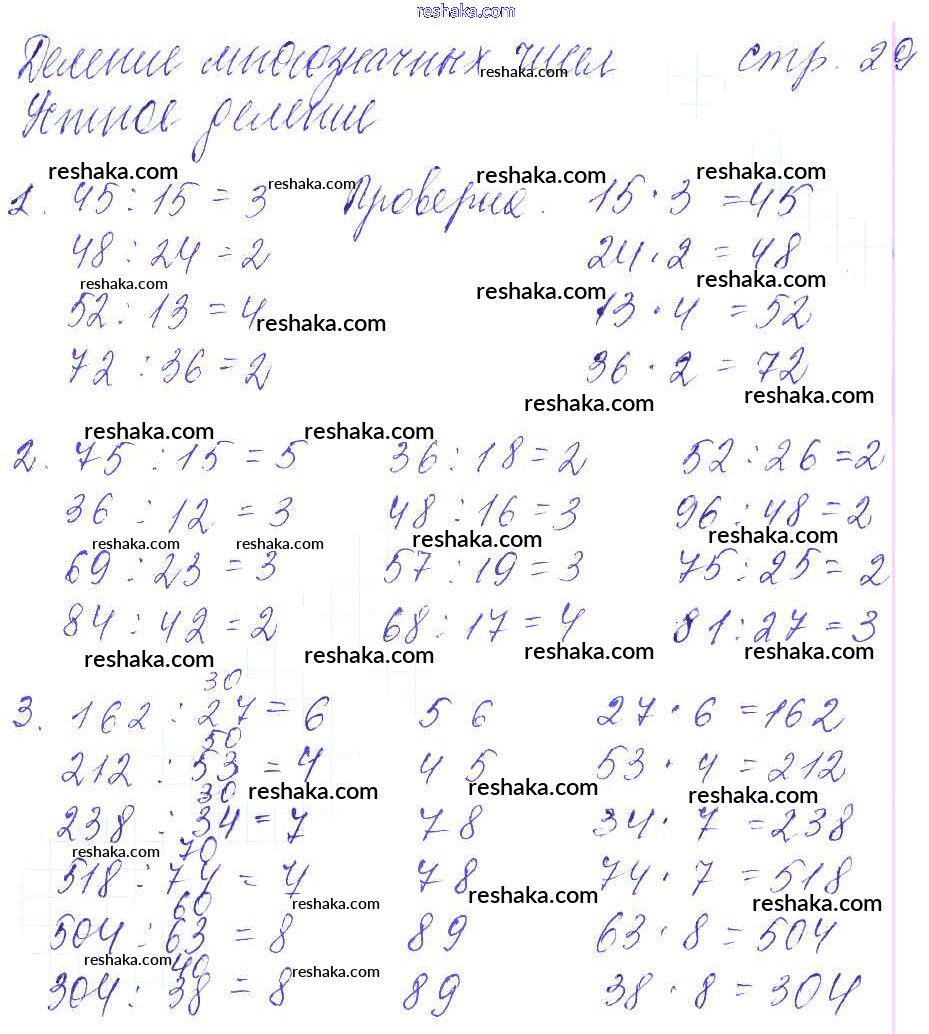 reshaka.com
Деление многозначных чисел стр. 29
reshaka.com
Устное деление
reshaka.com reshaka.com reshaka.com reshaka.com
1. 45 : 15 = 3 Проверка. 15 · 3 = 45
48 : 24 = 2 24 · 2 = 48
reshaka.com reshaka.com reshaka.com
52 : 13 = 4 13 · 4 = 52
reshaka.com
72 : 36 = 2 36 · 2 = 72
reshaka.com reshaka.com
reshaka.com reshaka.com
2. 75 : 15 = 5 36 : 18 = 2 52 : 26 = 2
36 : 12 = 3 48 : 16 = 3 96 : 48 = 2
reshaka.com reshaka.com reshaka.com reshaka.com
69 : 23 = 3 57 : 19 = 3 75 : 25 = 2
84 : 42 = 2 68 : 17 = 4 81 : 27 = 3
reshaka.com reshaka.com reshaka.com reshaka.com
30
3. 162 : 27 = 6 5 6 27 · 6 = 162
50
212 : 53 = 4 4 5 53 · 4 = 212
reshaka.com reshaka.com reshaka.com
30
238 : 34 = 7 7 8 34 · 7 = 238
reshaka.com
70
518 : 74 = 7 7 8 74 · 7 = 518
reshaka.com reshaka.com reshaka.com
60
504 : 63 = 8 8 9 63 · 8 = 504
reshaka.com reshaka.com
40
304 : 38 = 8 8 9 38 · 8 = 304